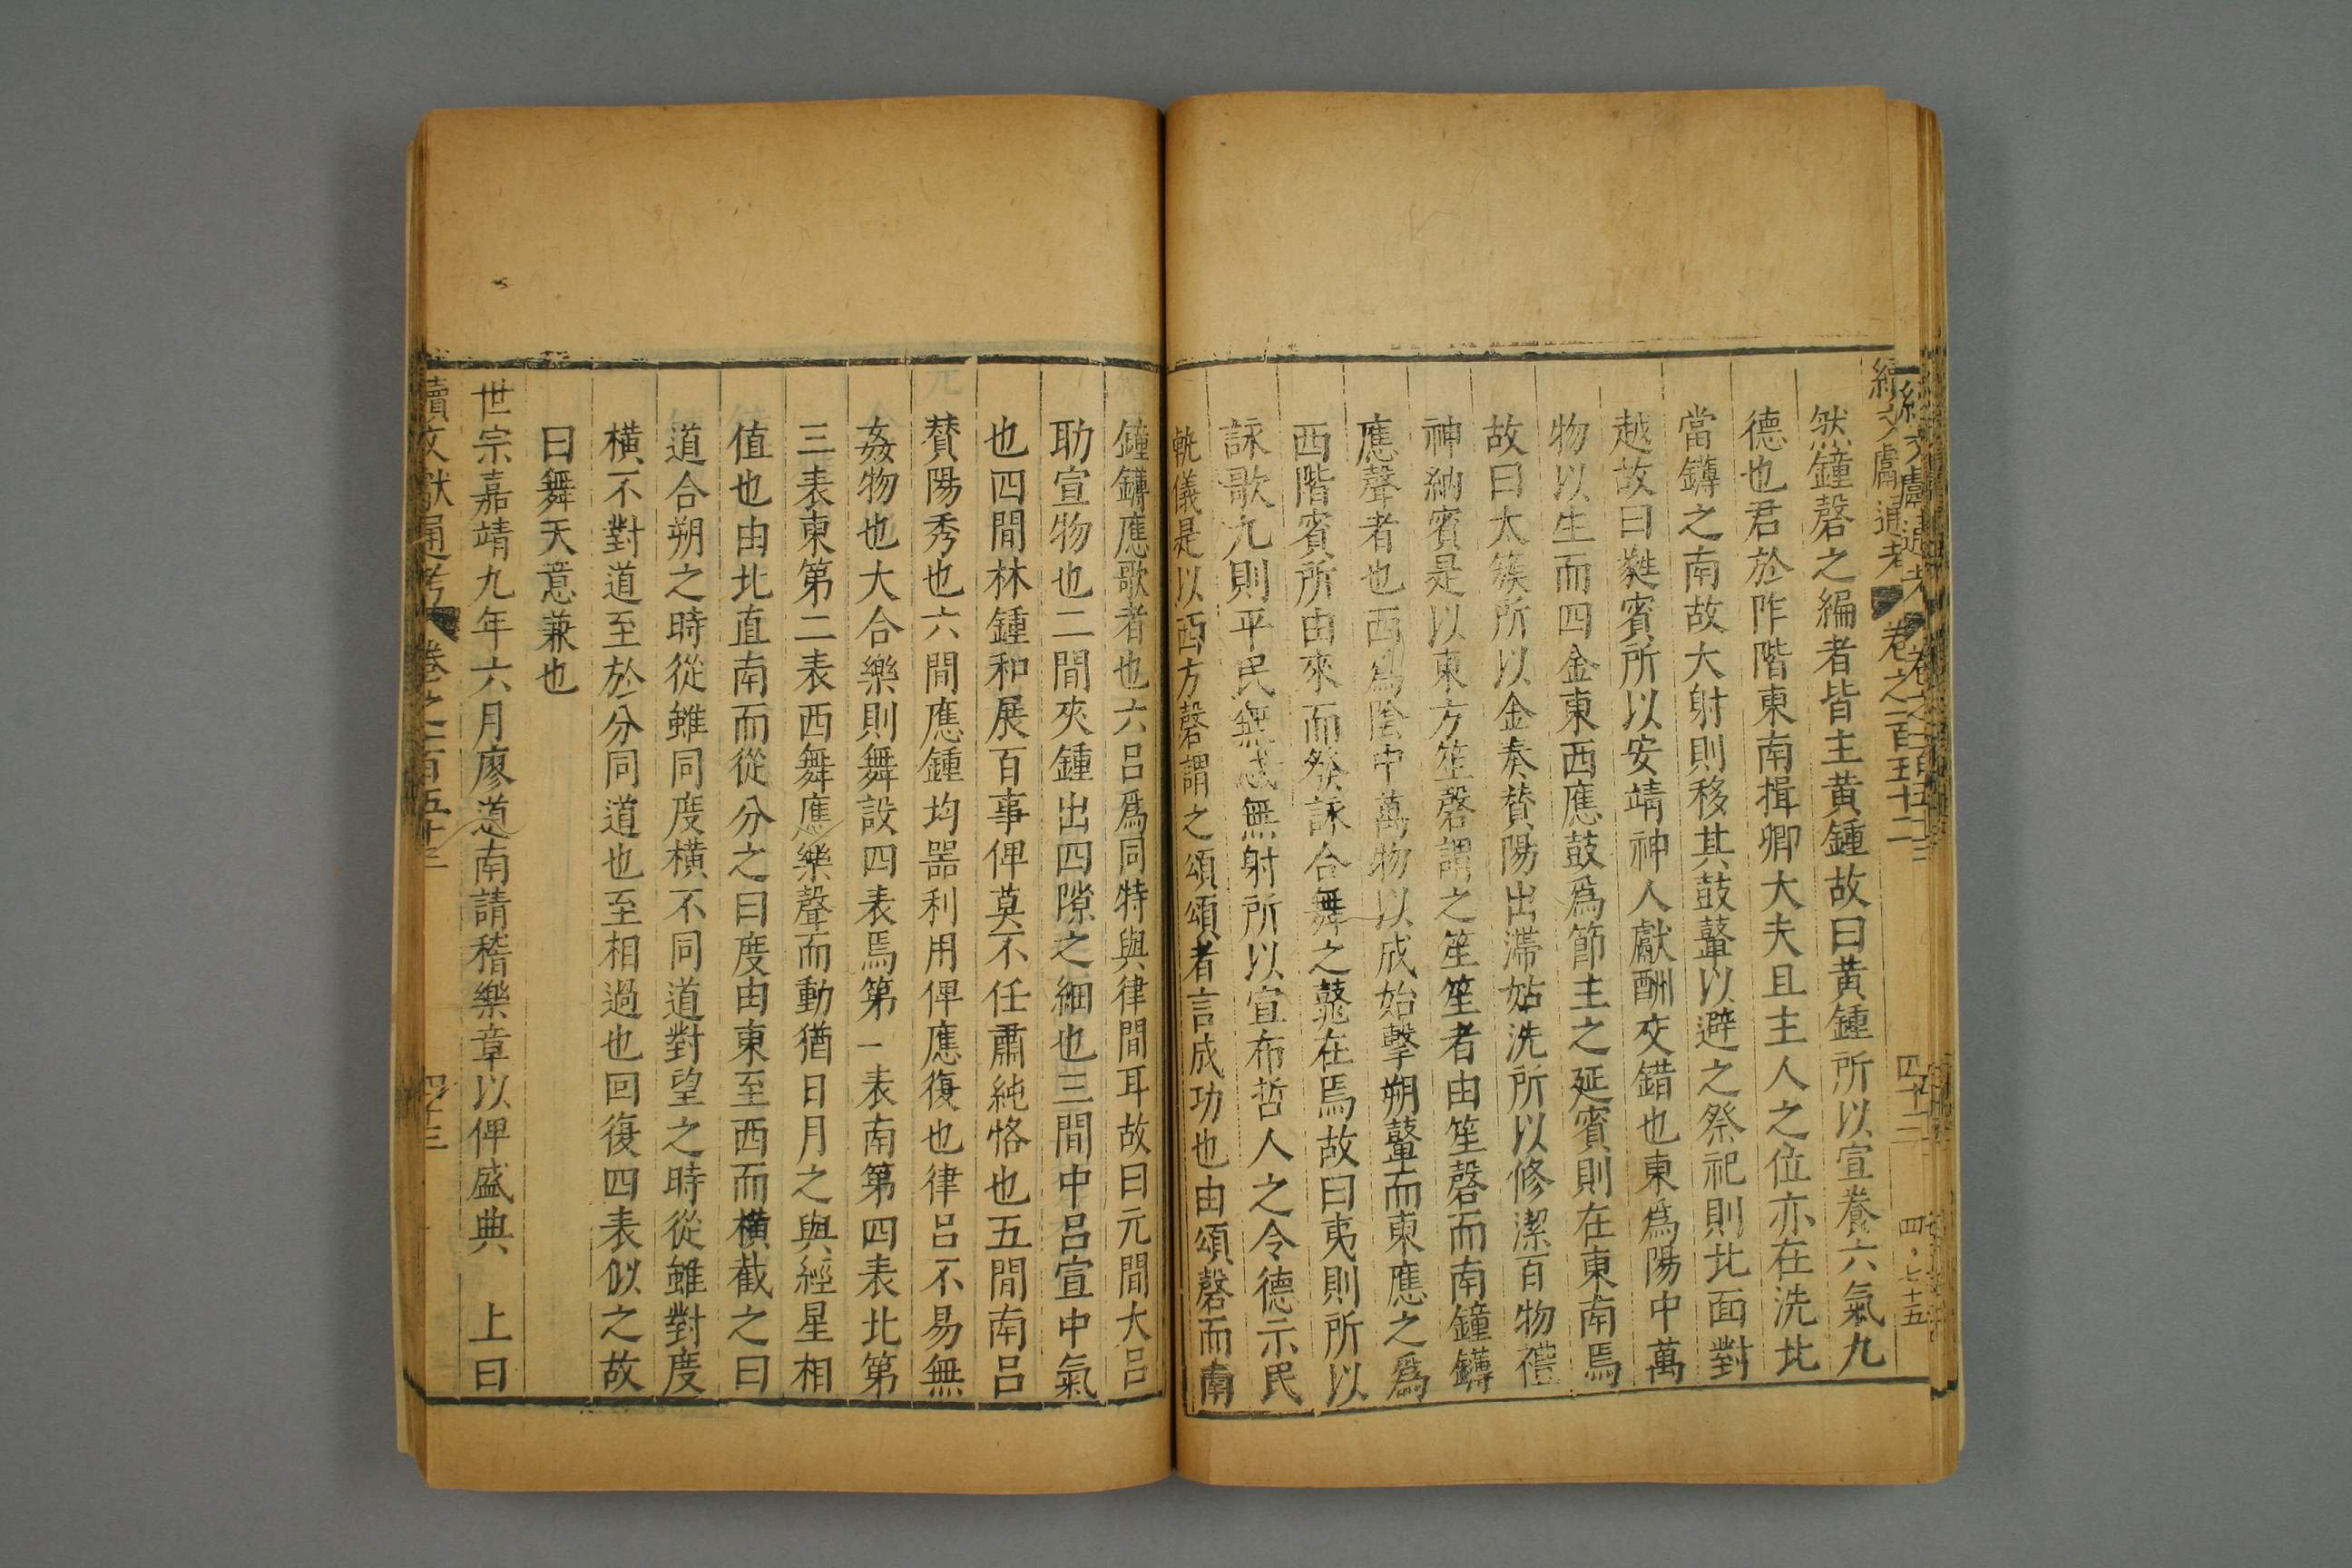 續文獻通考 卷之一百五十二 四十二 四・七十五
然鐘磬之編者皆主黃鍾故曰黃鍾所以宣養六氣九
德也君於阼階東南揖卿大夫且主人之位亦在洗北
當鑮之南故大射則移其鼓鼙以避之祭祀則北面對
越故曰蕤賓所以安靖神人獻酬交錯也東爲陽中萬
物以生而四金東西應鼓爲節主之延賓則在東南焉
故曰太簇所以金奏贊陽出滯姑洗所以修潔百物禮
神納賓是以東方笙磬謂之笙笙者由笙磬而南鐘鑮
應聲者也西爲陰中萬物以成始擊朔鼙而東應之爲
西階賓所由來而發詠合舞之鼗在焉故曰夷則所以
詠歌九則平民無忒無射所以宣布哲人之令德示民
軌儀是以西方磬謂之頌頌者言成功也由頌磬而南
鐘鑮應歌者也六呂爲同特與律間耳故曰元間大呂
助宣物也二間夾鍾出四隙之細也三間中呂宣中氣
也四間林鍾和展百事俾莫不任肅純恪也五間南呂
賛陽秀也六間應鍾均噐利用俾應復也律呂不易無
姦物也大合樂則舞設四表焉第一表南第四表北第
三表東第二表西舞應樂聲而動猶日月之與經星相
值也由北直南而從分之曰度由東至西而橫截之曰
道合朔之時從雖同度橫不同道對望之時從雖對度
橫不對道至於分同道也至相過也回復四表似之故
曰舞天意兼也
世宗嘉靖九年六月廖道南請稽樂章以俾盛典　上曰
續文獻通考 卷之一百五十二 四十三